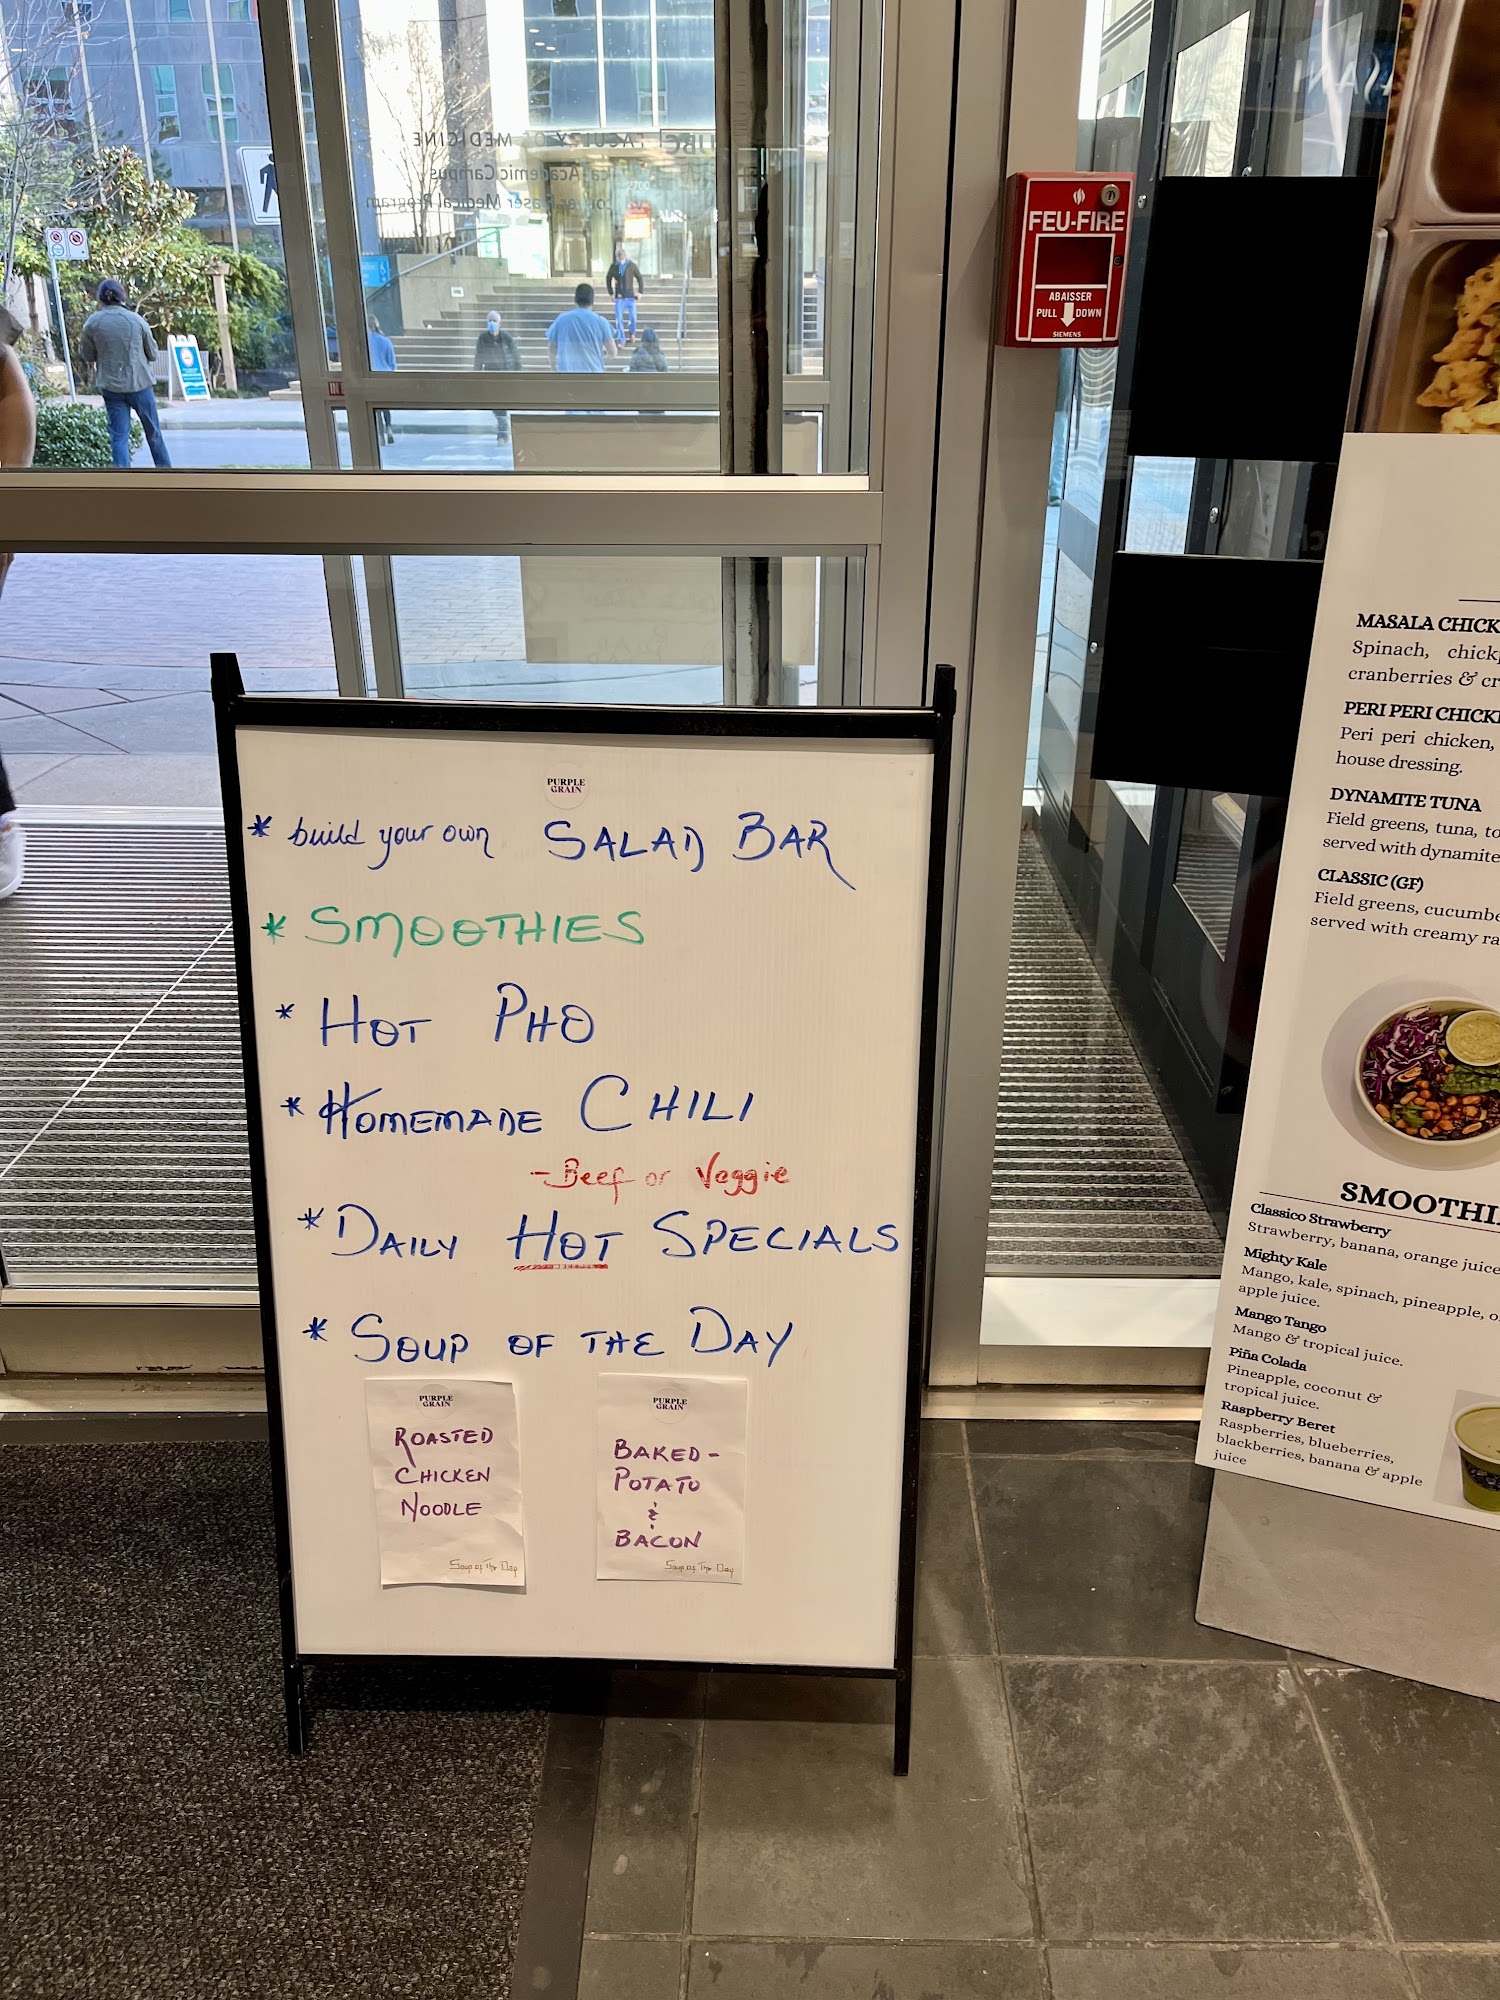 FACULTY OF MEDICINE
Academic Campus
Medical Program
FEU-FIRE
ABAISSER
PULL DOWN
SIEMENS
PURPLE
GRAIN
* build your own SALAD BAR
* SMOOTHIES
* HOT PHO
* HOMEMADE CHILI
- Beef or Veggie
* DAILY HOT SPECIALS
* SOUP OF THE DAY
PURPLE
GRAIN
ROASTED
CHICKEN
NOODLE
Soup of The Day
PURPLE
GRAIN
BAKED-
POTATO
&
BACON
Soup of The Day
MASALA
Spinach,
cranberries &
PERI PERI
Peri peri chicken,
house dressing.
DYNAMITE TUNA
Field greens, tuna,
served with dynamite
CLASSIC (GF)
Field greens,
served with creamy
Classico Strawberry
Strawberry, banana, orange juice
Mighty Kale
Mango, kale, spinach, pineapple,
apple juice.
Mango Tango
Mango & tropical juice.
Piña Colada
Pineapple, coconut &
tropical juice.
Raspberry Beret
Raspberries, blueberries,
blackberries, banana & apple
juice